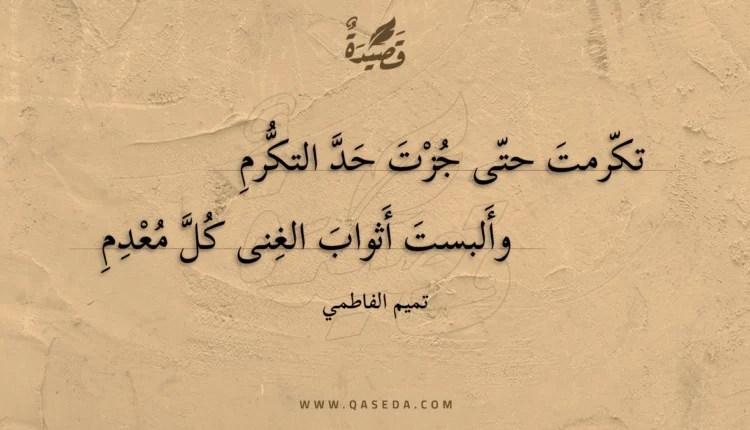 قَصِيْدَةٌ
تكرّمتَ حتّى جُزْتَ حَدَّ التكرُّمِ
وأَلبستَ أَثوابَ الغِنى كُلَّ مُعْدِمِ
تميم الفاطمي
WWW.QASEDA.COM